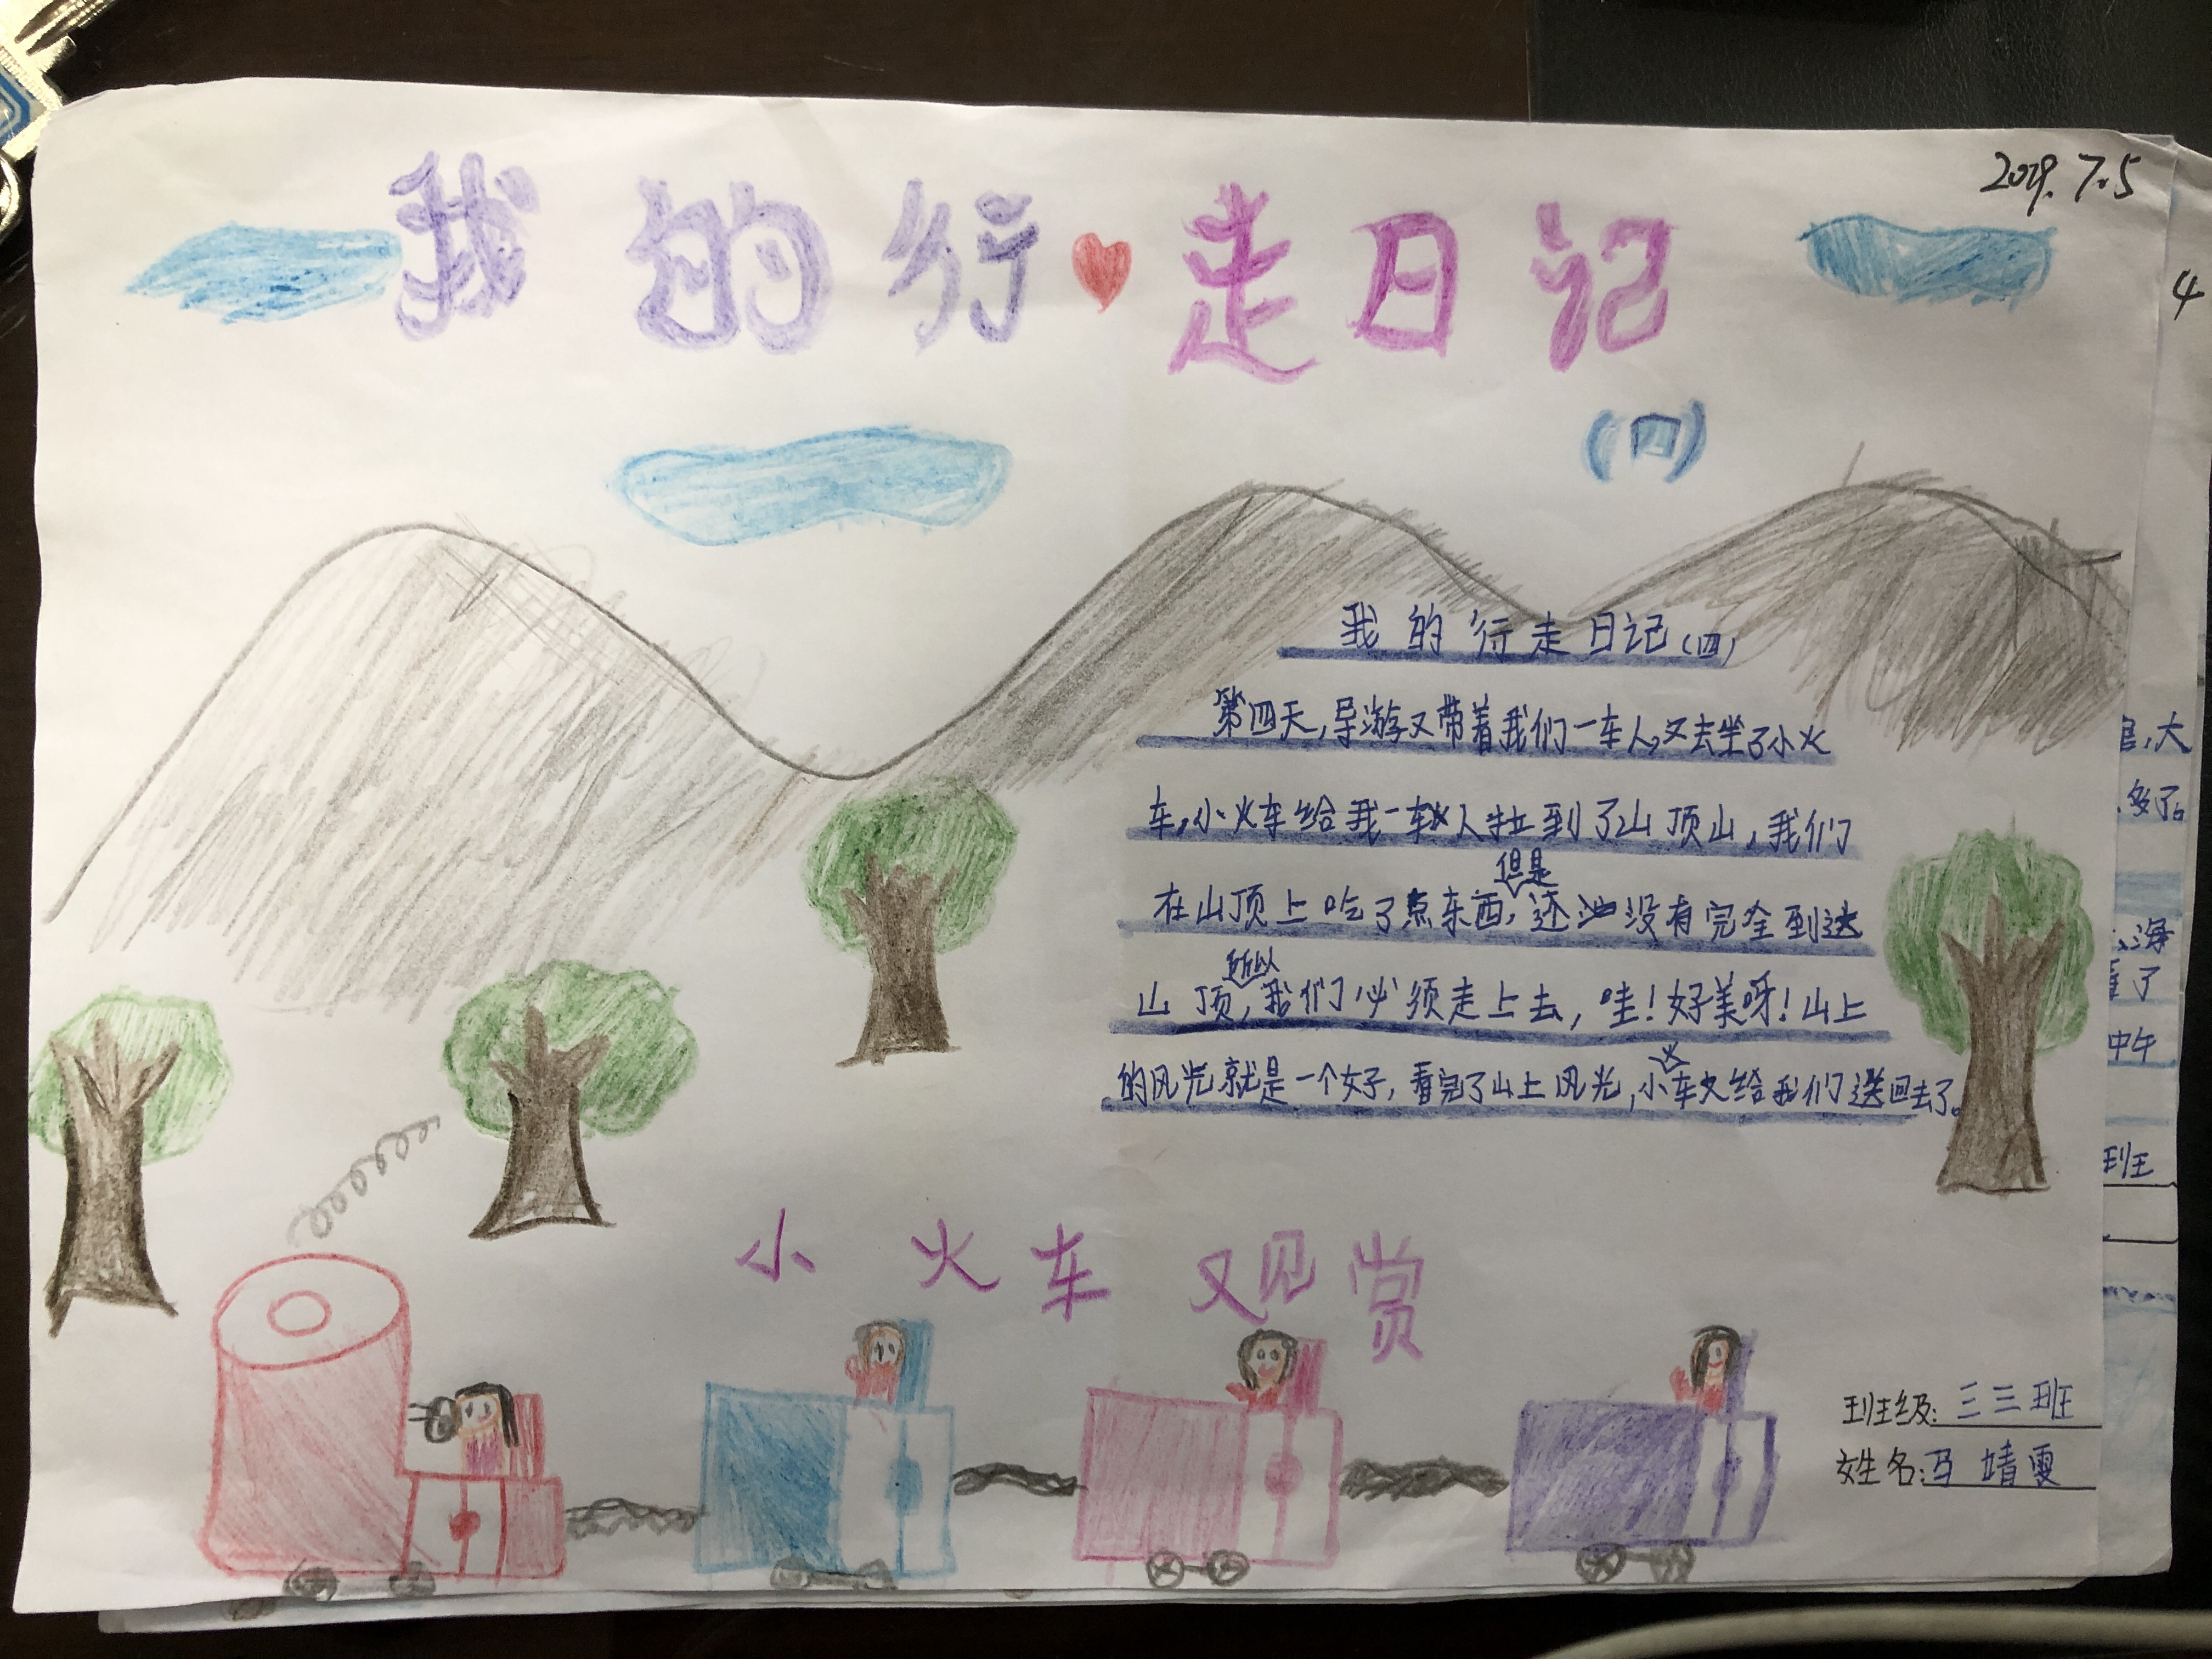 2019.7.5
我的行走日记
(四)
我的行走日记(四)
第四天,导游又带着我们一车人,又去坐了小火
车,小火车给我一车人拉到了山顶山,我们
但是
在山顶上吃了点东西,还没有完全到达
所以
山顶,我们必须走上去,哇!好美呀!山上
的风光就是一个好,看完了山上风光,小车又给我们送回去了。
火
小火车观赏
班级:三三班
姓名:冯靖雯
4
,大
多了。
海
了
中午
班